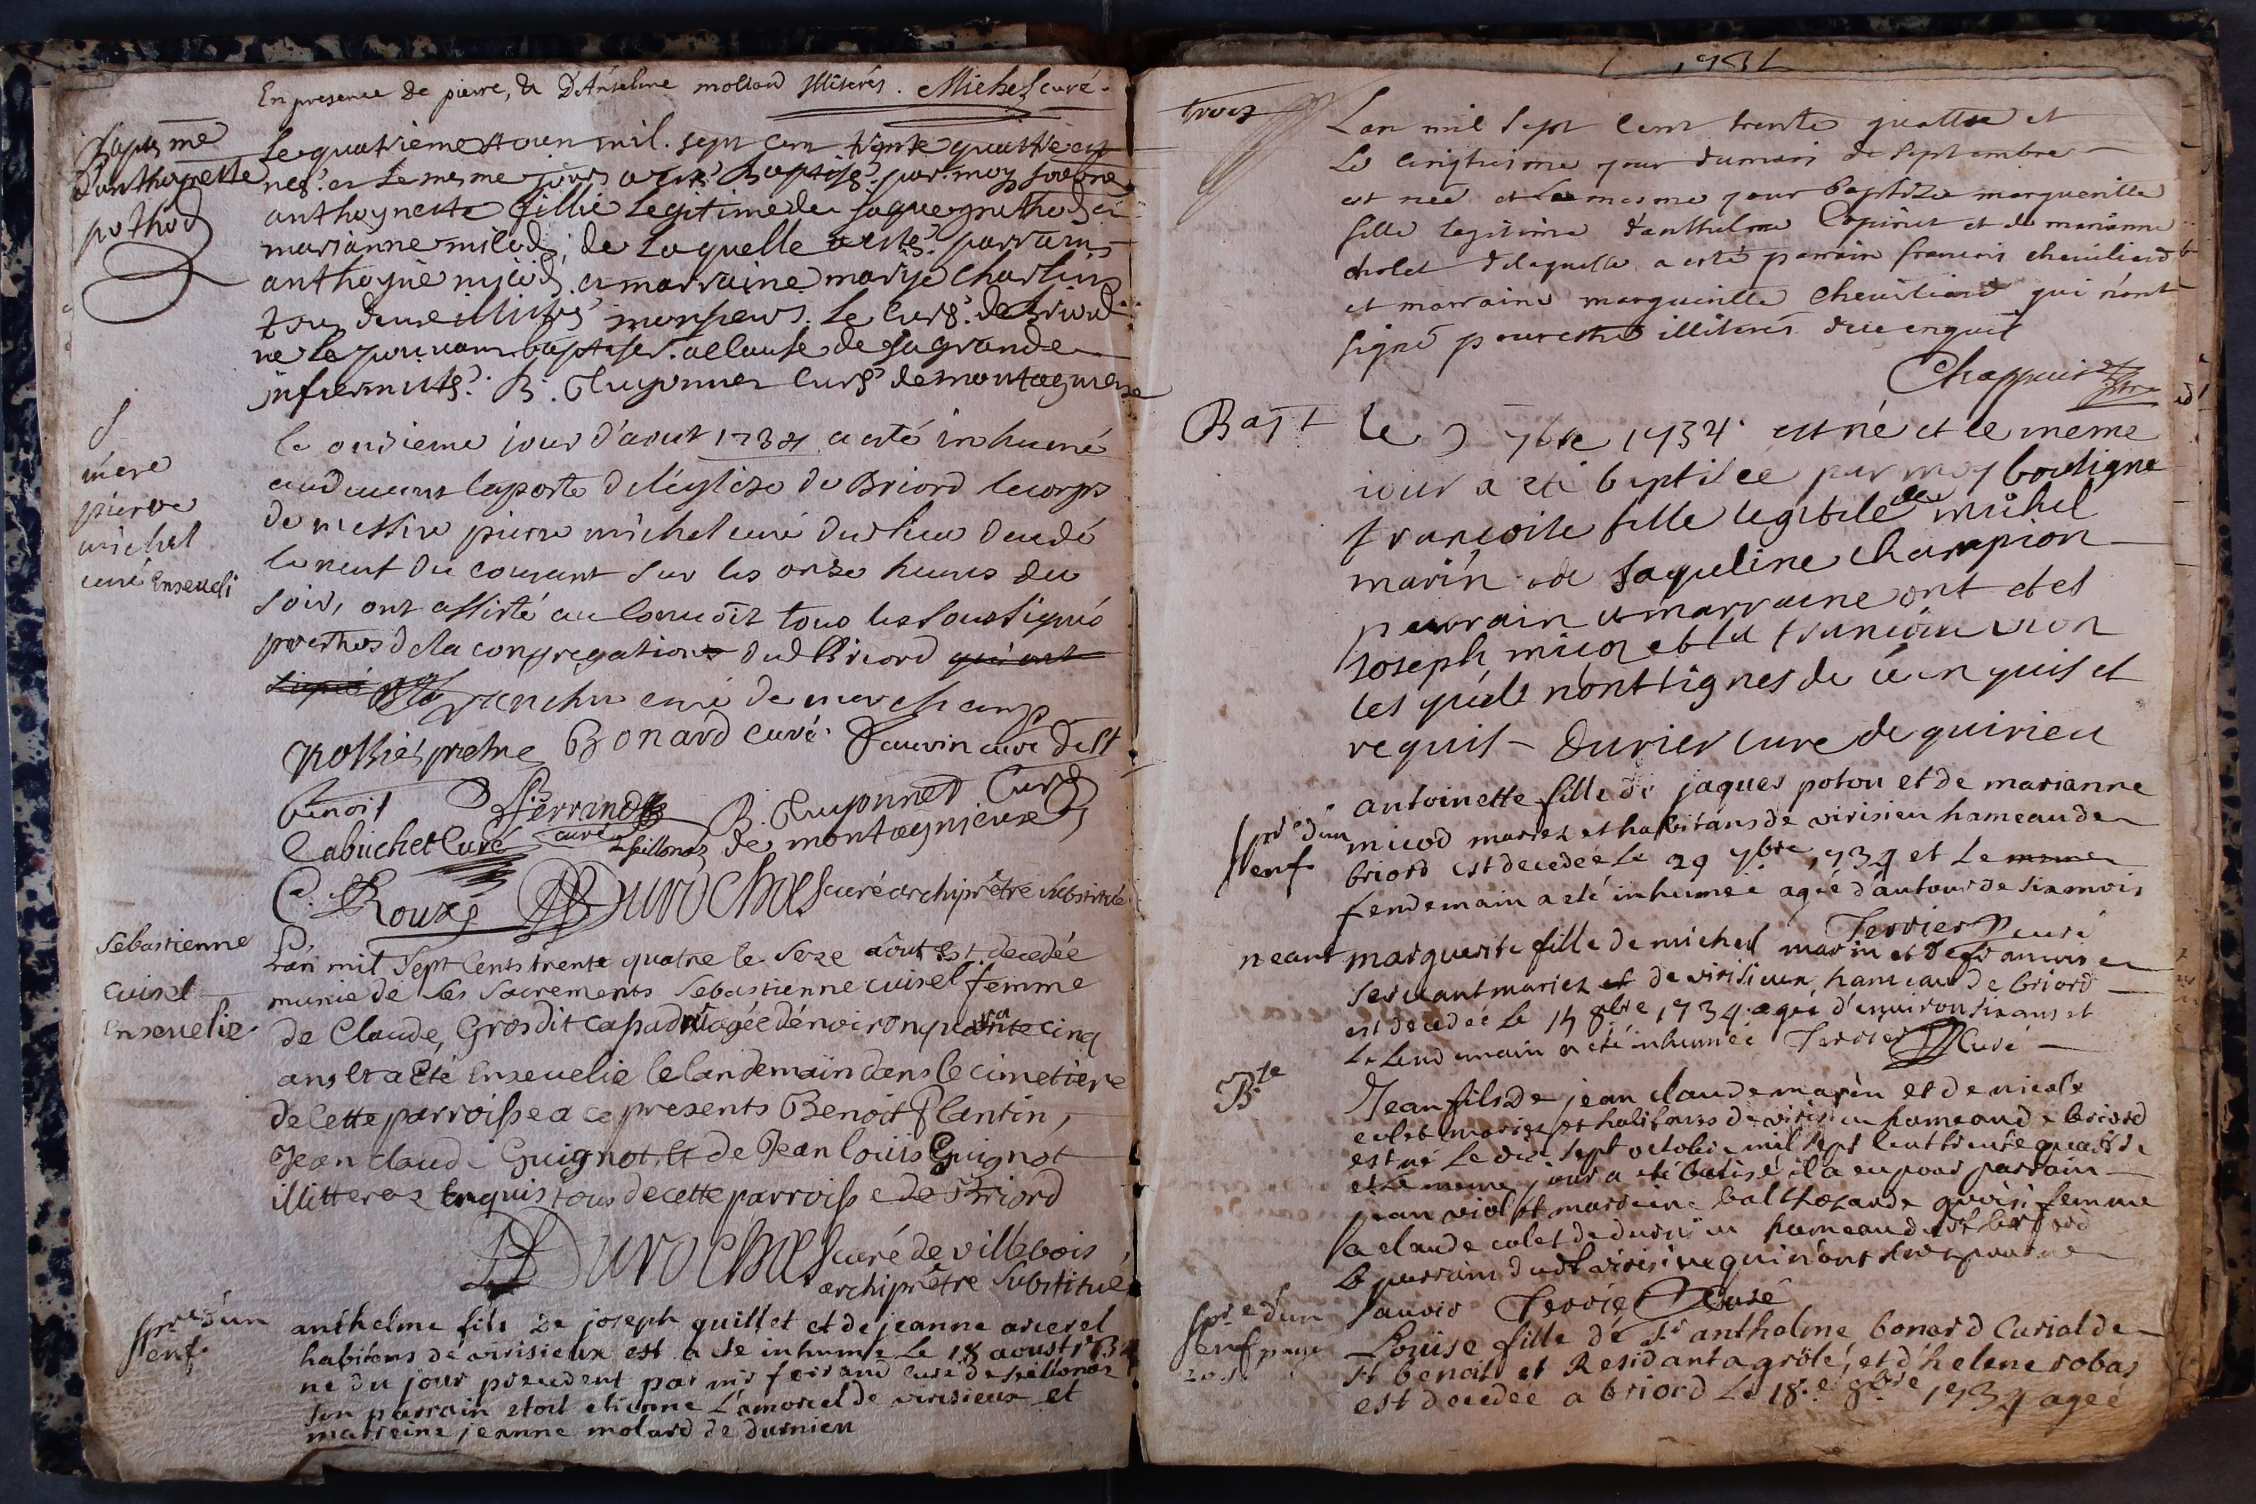 En presence de pierre, & D'Anselme mollard Illiterés. Michel curé.
Baptesme
D'anthoynette
pothod
Le quatrieme aoun mil. sept cen trente quattre est
nes.. et le mesme jour a esté Baptisé. par. moy soubsne
anthoynette fillie legitime de jaque pothod et
marianne micod; de laquelle a esté. parrain
anthoyne micod, et marraine marije Charlin
tou deux illittres monsieurs. le curé. de briord
ne le pouvan baptiser. a cause de sa grande
infirmité. B. Guyonnet curé de montagnieux
mere
pierre
michel
curé Enseveli
le onsieme jour d'aout 1734 a esté inhumé
audevant la porte de l'eglize de Briord le corps
de messire pierre michel curé dud lieu decedé
le neuf du courant sur les onze heures du
soir, ont assisté au convoit tous les soussignés
prestres de la congregation dud Briord qui ont
signé curé de marchamp
prestre Bonard curé fauvin curé de st
Benoit ferrand B. Guyonnet Curé
Cabuchet Curé curé de seillonaz de montagnieux
C. Roux Durochas curé archiprêtre substitué
Sebastienne
cuisel
Ensevelie
L'an mil sept cents trente quatre le seze aôut est decedée
munie de ses sacrements Sebastienne cuisel femme
de Claude, Gros dit Capadru agée d'énviron quarante cinq
ans et a été ensevelie le landemain dans le cimetiere
de cette parroisse a ce presents Benoit Plantin,
Jean claude Guignot, et de Jean louis Guignot
illitterez enquis tous de cette parroisse de Briord
Durochas curé de villebois
archiprêtre Substitué
Spre d'un
enf.
anthelme fils de joseph quillet et de jeanne
habitans de virisieux est a été inhumé le 18 aoust 1734
né du jour precedent par mr ferrand curé de seillonaz
son parrain etoit etienne l'amoral de virisieux et
marreine jeanne molard de durnieu
1734
trois
L'an mil sept cent trente quattre et
le cinquieme jour du mois de septembre
est née et le mesme jour baptize marguerille
fille legitime d'anthelme Copinet et de marianne
cholet de laquelle a esté parrain francois chevilliard
et marraine marguerille chevilliard qui n'ont
signé pour estre illiterés de ce enquis
Chappuis
Bapt
le 5 7bre 1734. est né et le meme
iour a été baptisée par moy soutigne
francoise fille legitile de michel
marin et de Jaqueline champion
parrain et marraine ont etes
ioseph micoz et la francoise vion
les quels nont signes de ce enquis et
requis - Durier cure de quirieu
Spre d'un
enf.
antoinette fille de jaques potou et de marianne
micod mariez et habitans de virisieu hameau de
briord est decedeé le 29 7bre 1734 et le
lendemain a eté inhumeé ageé d'autour de six mois
Terrier curé
neant
marguerite fille de michel marin et de francoise
servant mariez et de virisieux hameau de briord
est decedeé le 14 8bre 1734 ageé d'environ six ans et
le lendemain a eté inhumeé Terrier Curé
Bte
Jean fils de jean claude marin et de nicole
colet mariez et habitans de virisieu hameau de briord
est né le dix sept octobre mil sept cent trente quatre
et le meme jour a été batisé il a eu pour parrain
jean violet marreine balthazarde femme
a claude colet de durnieu hameau dudt briord
le parrain dudt virisieux qui n'ont signé pour ne
sauoir Terrier Curé
Spre d'un
enf. page
Louise fille de Sr anthelme bonard Curial de
st benoit et Residant a grolé, et d'helene robas
est decedée a briord le 18.e 8bre 1734 ageé